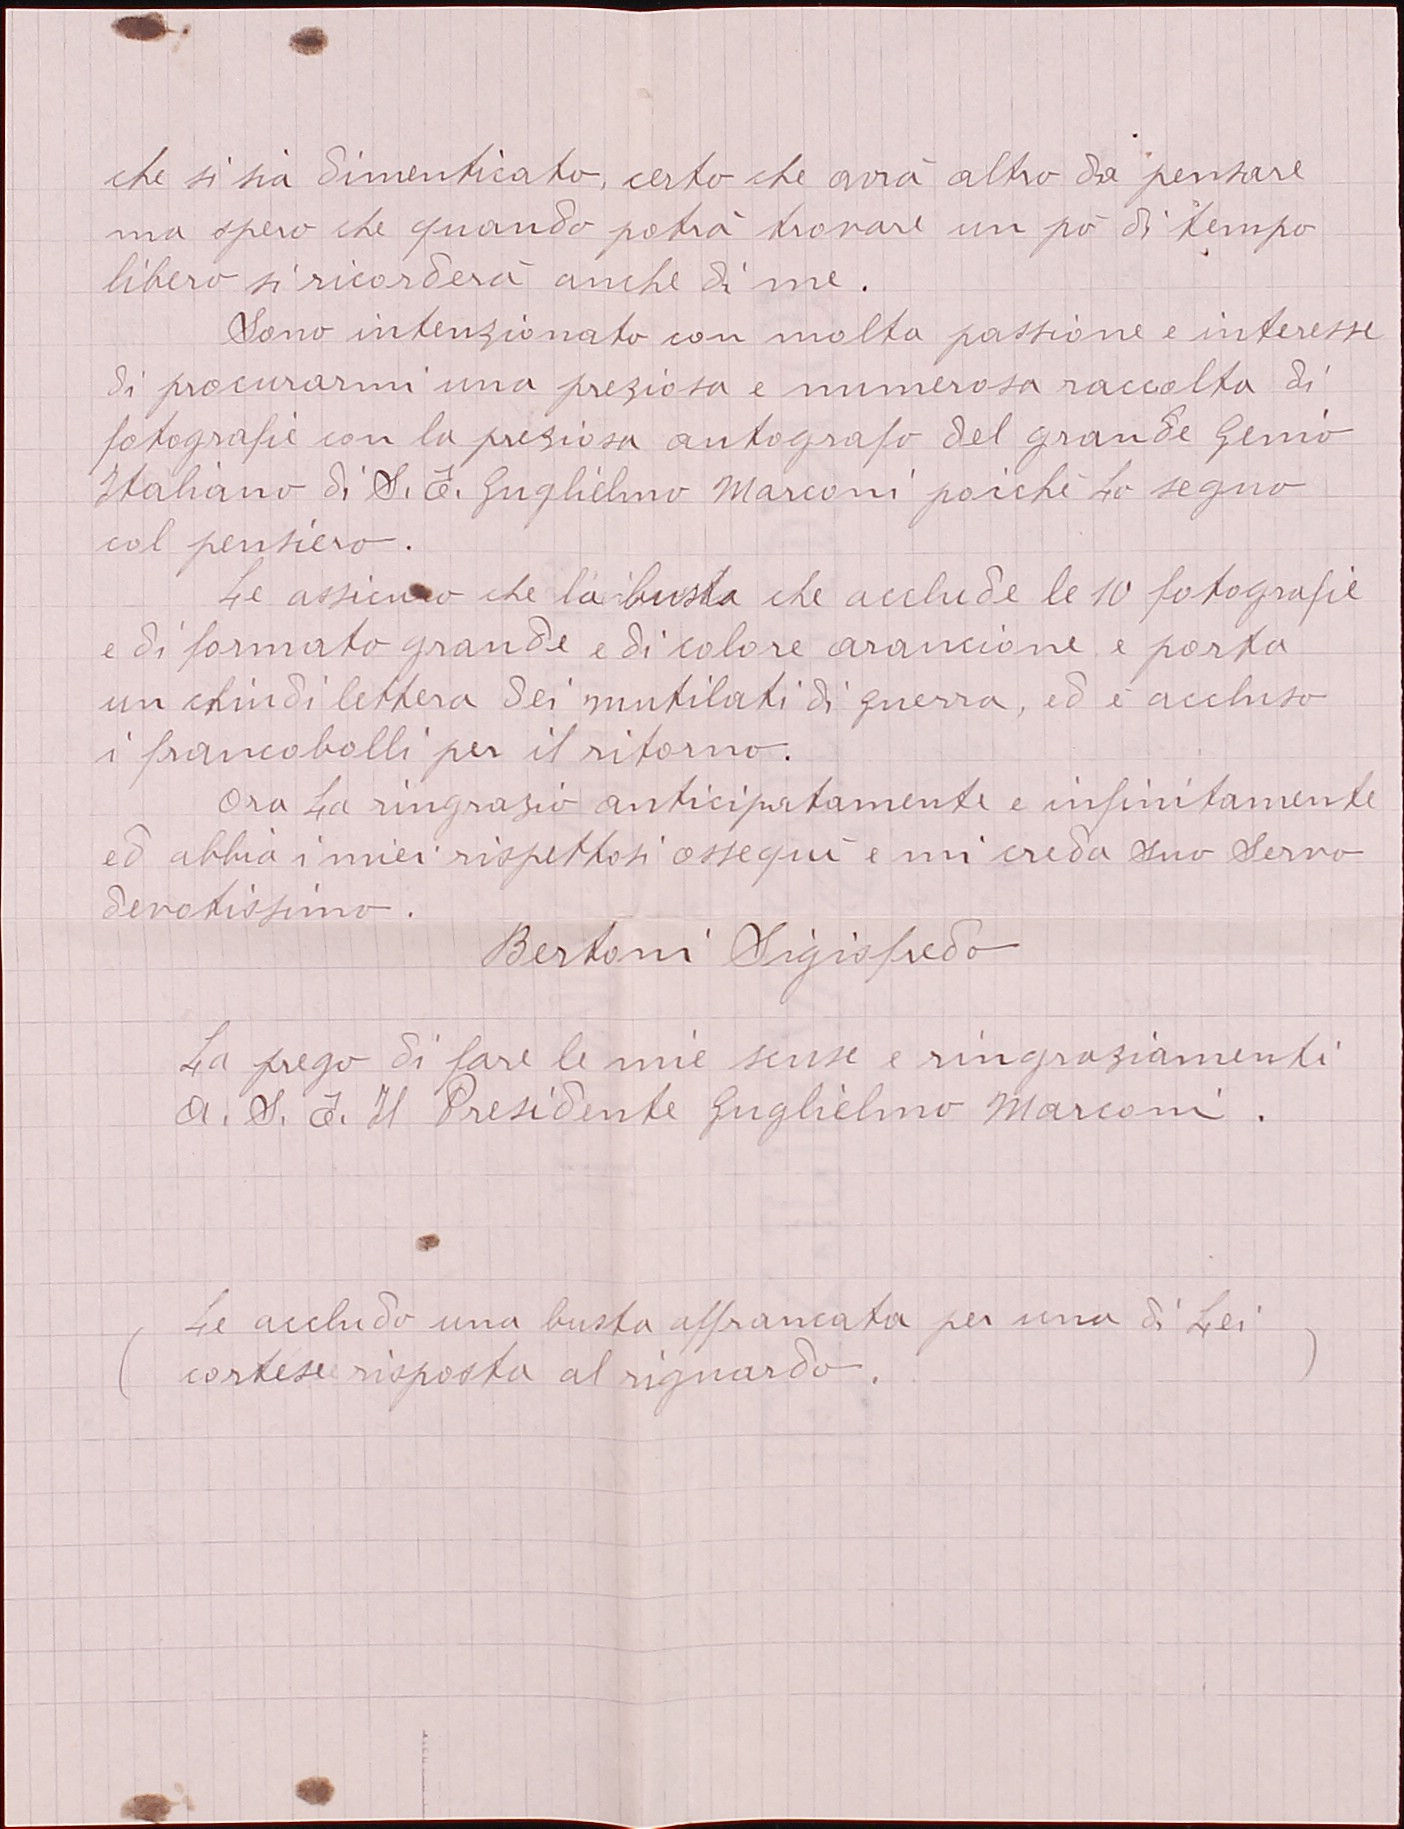 che si sia dimenticato, certo che avrà altro da pensare
ma spero che quando potrà trovare un pò di tempo
libero si ricorderà anche di me.
Sono intenzionato con molta passione e interesse
di procurarmi una preziosa e numerosa raccolta di
fotografie con la preziosa autografo del grande Genio
Italiano di S. E. Guglielmo Marconi poichè Lo seguo
col pensiero.
Le assicuro che la busta che acclude le 10 fotografie
e di formato grande e di colore arancione e porta
un chiudi lettera dei mutilati di guerra, ed è accluso
i francobolli per il ritorno.
Ora La ringrazio anticipatamente e infinitamente
ed abbia i miei rispettosi ossequi e mi creda Suo Servo
devotissimo.
Bertoni Sigisfredo
La prego di fare le mie scuse e ringraziamenti
a. S. E. Il Presidente Guglielmo Marconi.
( Le accludo una busta affrancata per una di Lei )
cortese risposta al riguardo.